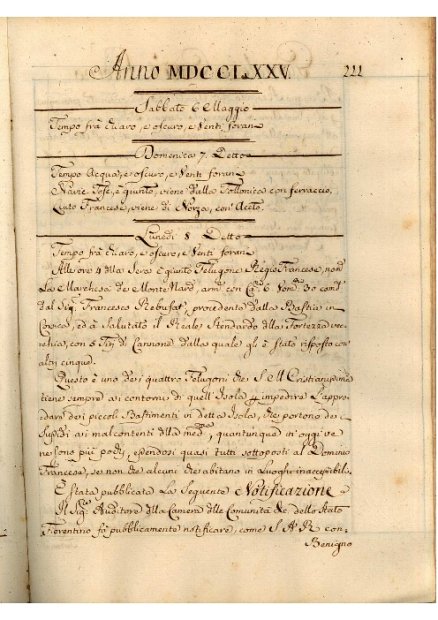 Anno MDCCLXXV. 222
Sabbato 6 Maggio
Tempo frà Chiaro, e oscuro, e Venti foran
Domenica 7. Detto
Tempo Acqua, e oscuro, e Venti foran
Navic. Tose, è giunto, viene dalla Follonica con ferraccio,
Liuto Francese, viene di Nizza, con Aceto.
Lunedì 8 Detto
Tempo frà Chiaro, e oscuro, e Venti foran
Alle ore 4 della Sera è giunto Felugone Regio Francese, nom.
La Marchesa de Monte Nard, arm. con Ca. 6 Uom. 30 com.
dal Sig. Francesco Rebufat, procedente dalla Bastia in
Corsica, ed à Salutato il Reale Stendardo della Fortezza
con 5 Tiri di Cannone dalla quale gl'è Stato risposto con
altri cinque.
Questo è uno dei quattro Felugoni che S M Cristianissima
tiene sempre ai contorni di quell'Isola p impedire L'appro=
dare dei piccoli Bastimenti in detta Isola, che portono dei
Sussidj ai malcontenti della med., quantunque in oggi ve
ne sono più pochi, essendosi quasi tutti sottoposti al Dominio
Francese, se non che alcuni che abitano in Luoghi inaccessibili.
È Stata pubblicata La Seguente Notificazione
Il Sig. Auditore della Camera delle Comunità &c dello Stato
Fiorentino fà pubblicamente notificare, come S A R con-
Benigno